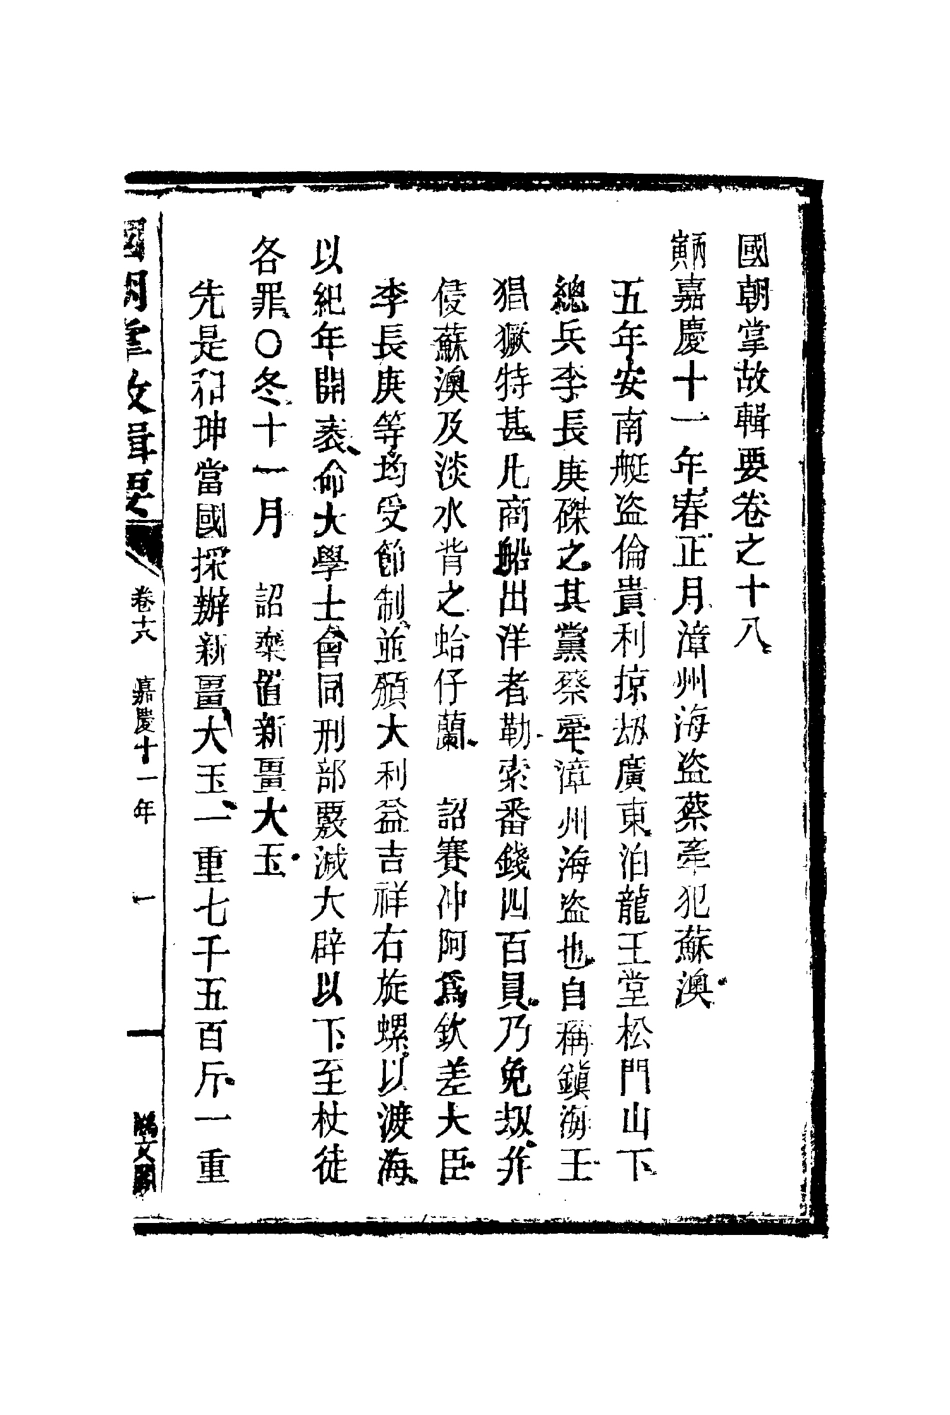 國朝掌故輯要卷之十八
丙寅嘉慶十一年春正月漳州海盜蔡牽犯蘇澳
五年安南艇盜倫貴利掠刼廣東泊龍王堂松門山下
總兵李長庚磔之其黨蔡牽漳州海盜也自稱鎮海王
猖獗特甚凡商船出洋者勒索番錢四百員乃免刼并
侵蘇澳及淡水背之蛤仔蘭　詔賽冲阿爲欽差大臣
李長庚等均受節制並頒大利益吉祥右旋螺以渡海
以紀年開袠命大學士會同刑部覈減大辟以下至杖徒
各罪〇冬十一月　詔棄置新畺大玉
先是和珅當國採辦新畺大玉一重七千五百斤一重
國朝掌故輯要　卷十八　嘉慶十一年　一　鴻文閣